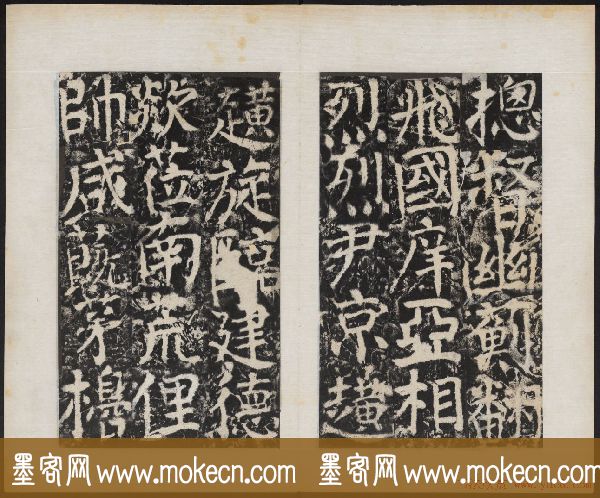 摠督幽薊翻
飛國庠亞相
烈烈尹京趪
趪旋臨建德
歘莅南荒俚
帥咸蔇茅
墨客网 www.mokecn.com 墨客网 www.mokecn.com